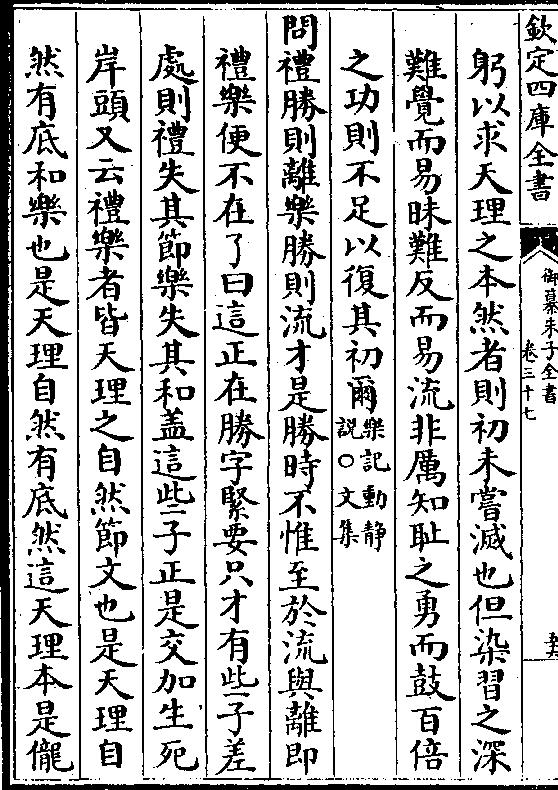 欽定四庫全書
御纂朱子全書
卷三十七
躬以求天理之本然者則初未嘗滅也但染習之深
難覺而易昧難反而易流非厲知恥之勇而鼓百倍
之功則不足以復其初爾樂記動静
說○文集
問禮勝則離樂勝則流才是勝時不惟至於流與離即
禮樂便不在了曰這正在勝字緊要只才有些子差
處則禮失其節樂失其和蓋這些子正是交加生死
岸頭又云禮樂者皆天理之自然節文也是天理自
然有底和樂也是天理自然有底然這天理本是儱